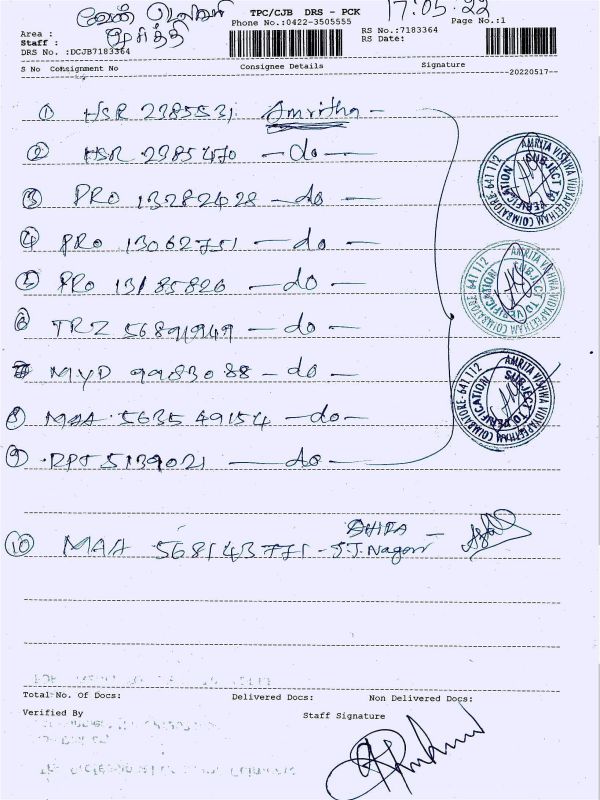 TPC/CJB DRS - PCK
17.05.22
Phone No.:0422-3505555
Page No.:1
Area :
Staff :
DRS No. :DCJB7183364
RS No.:7183364
RS Date:
S No Consignment No Consignee Details Signature
--20220517--
① HSR 2385531 Amritha —
② HSR 2385470 — do —
③ PRO 13282428 — do —
④ PRO 13062751 — do —
⑤ PRO 13185826 — do —
⑥ TRZ 56891949 — do —
MYD 9983088 — do —
⑧ MAA 563549154 — do —
⑨ RPJ 5139021 — do —
AMRITA VISHWA VIDYAPEETHAM COIMBATORE-641 112
SUBJECT TO VERIFICATION
AMRITA VISHWA VIDYAPEETHAM COIMBATORE-641 112
SUBJECT TO VERIFICATION
AMRITA VISHWA VIDYAPEETHAM COIMBATORE-641 112
SUBJECT TO VERIFICATION
⑩ MAA 568143771 - J.J. Nagar
Total No. Of Docs: Delivered Docs: Non Delivered Docs:
Verified By Staff Signature